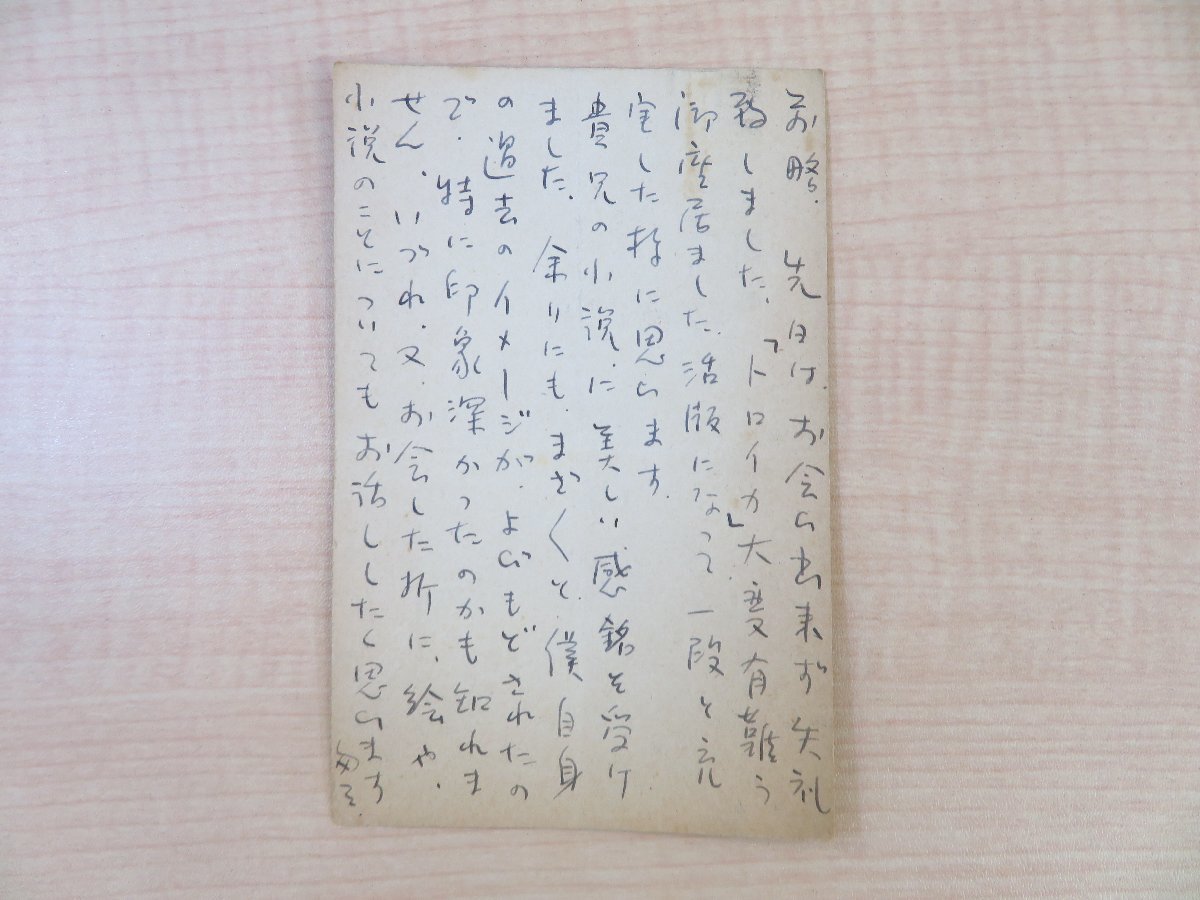 前略. 先日は、お会い出来ず失礼
致しました、「トロイカ」大変有難う
御座居ました、活版になって一段と充
実した様に思います.
貴兄の小説、に美しい感銘を受け
ました、余りにも、まざ〱と、僕自身
の過去のイメージが、よびもどされたの
で、特に印象深かったのかも知れま
せん、いづれ、又、お会した折に、絵や、
小説のことについてもお話ししたく思います
匆々.